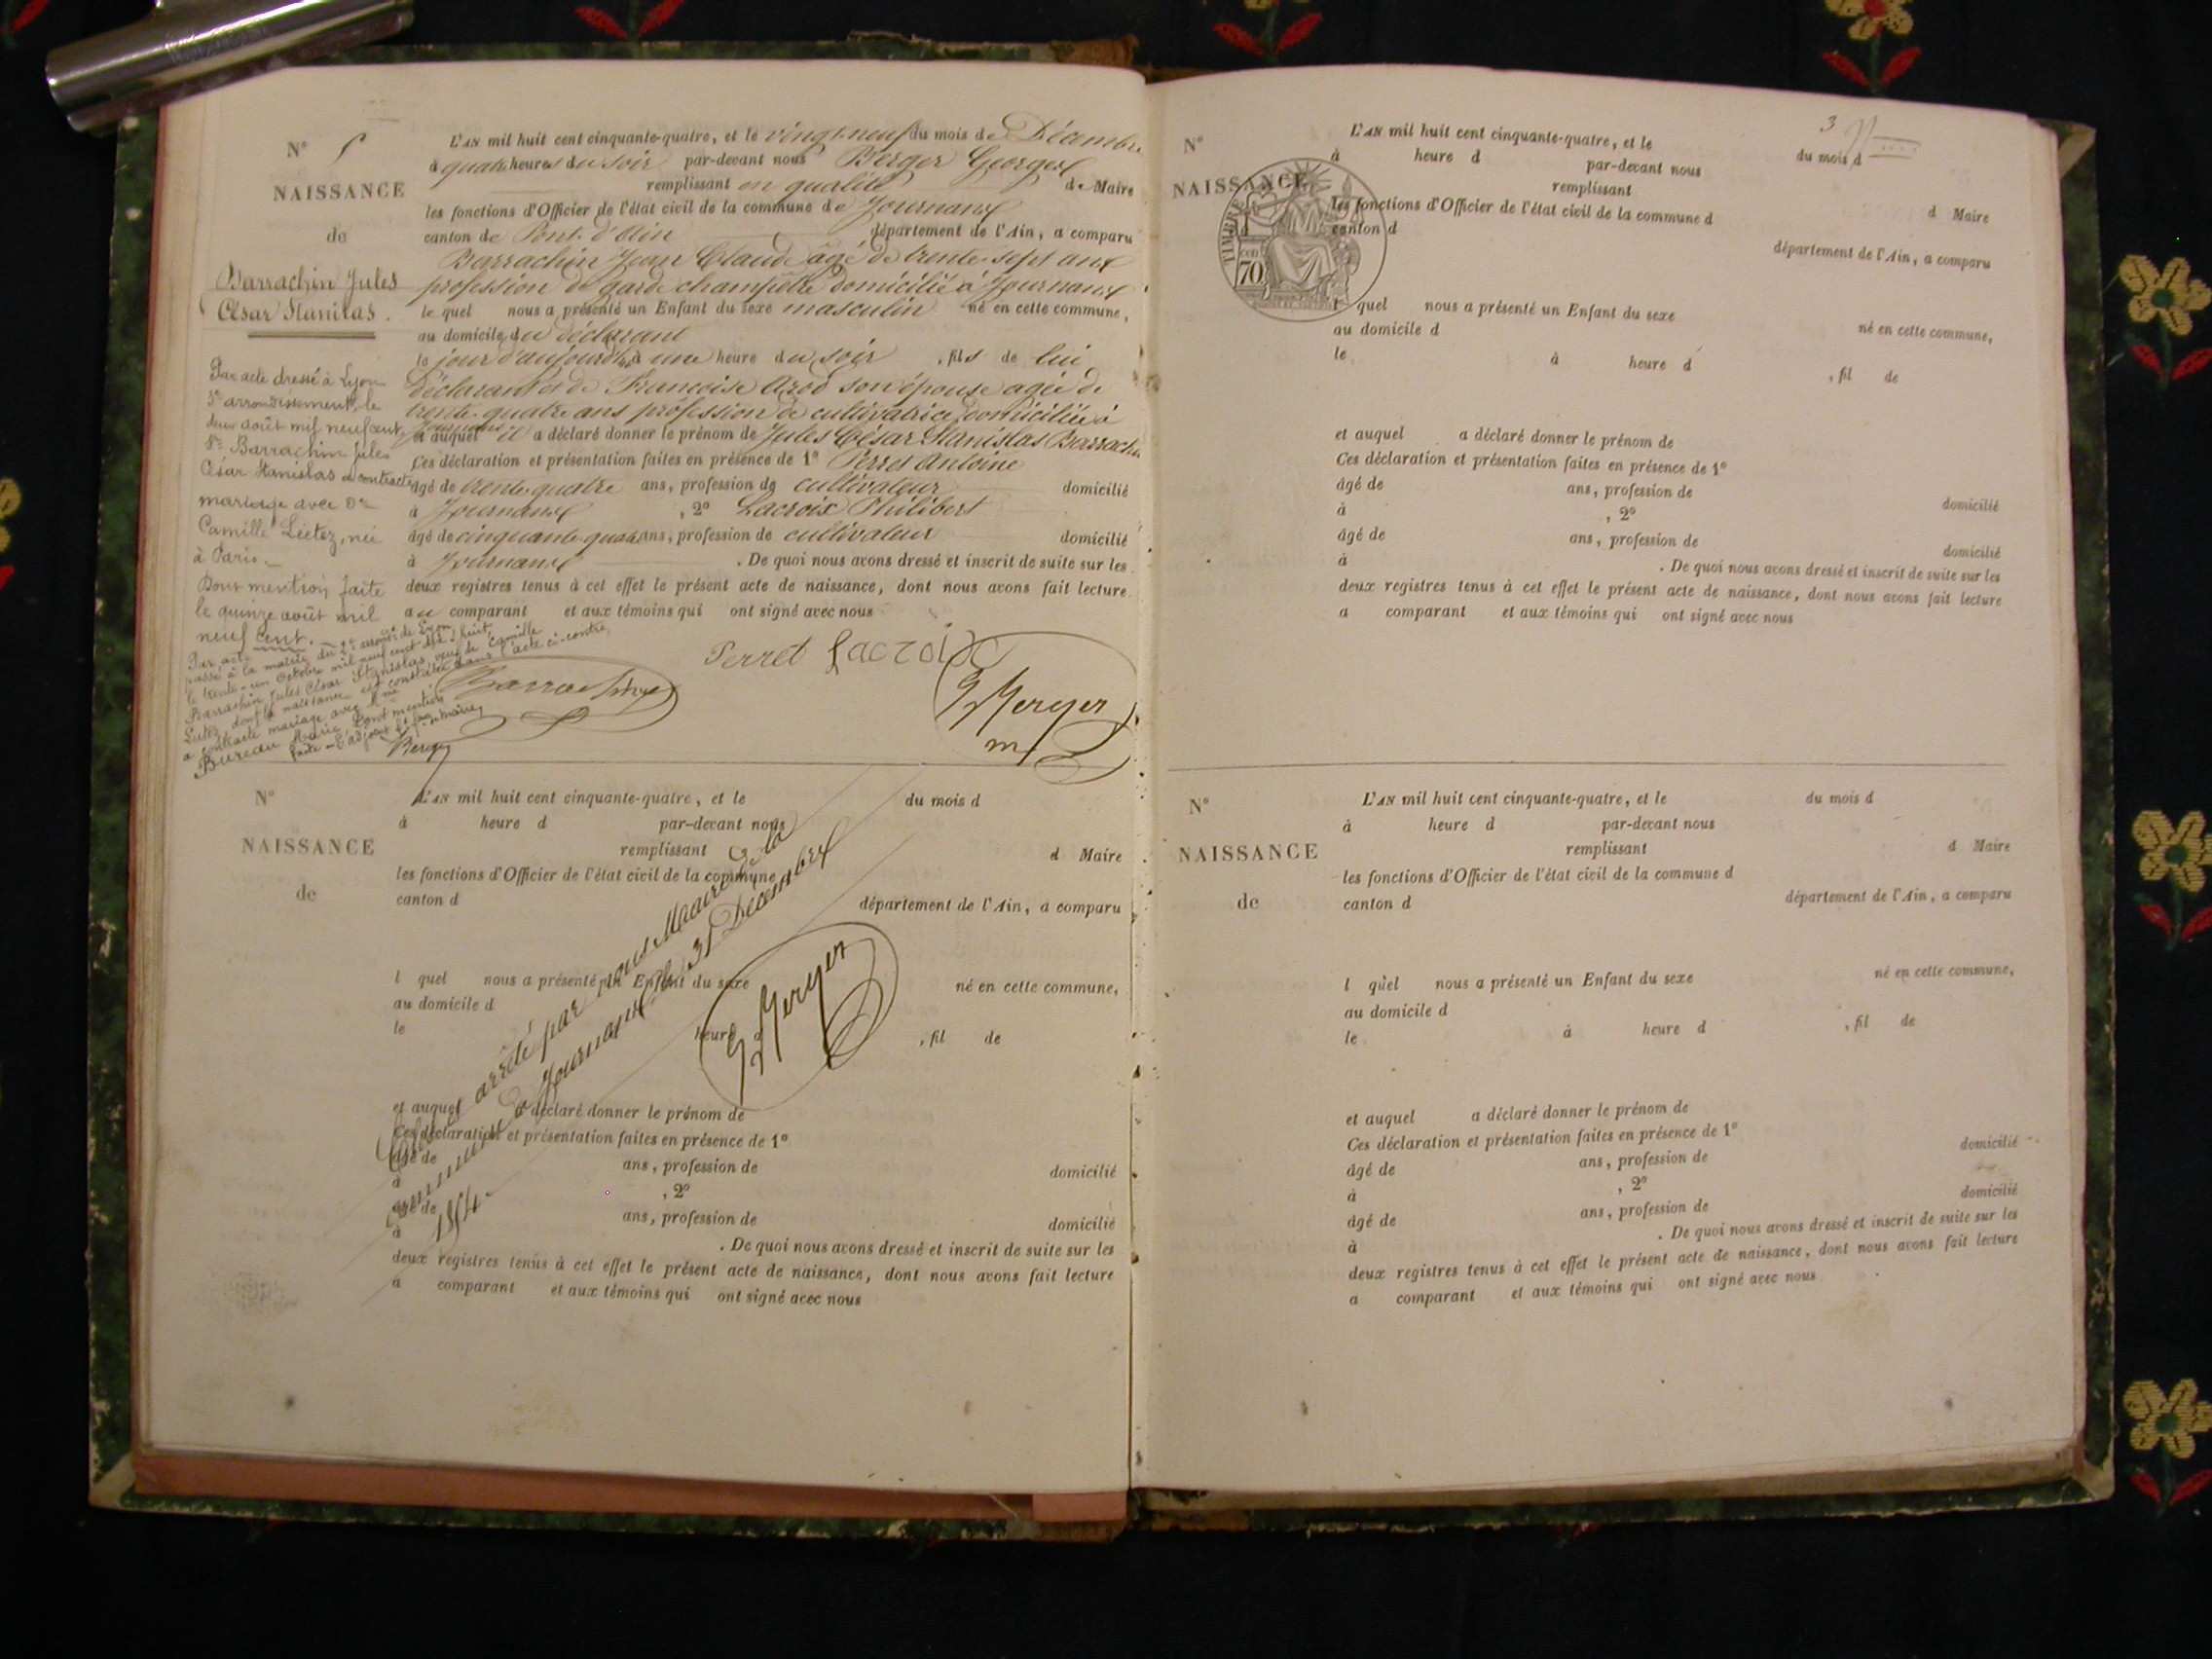 N° 5
NAISSANCE
de
Barrachin Jules
César Stanilas.
L'AN mil huit cent cinquante-quatre, et le vingt-neuf du mois de Décembre
à quatre heures du soir par-devant nous Berger Georges
remplissant en qualité de Maire
les fonctions d'Officier de l'état civil de la commune de Journans
canton de Pont-d'Ain département de l'Ain, a comparu
Barrachin Jean Claude âgé de trente-sept ans
profession de garde champêtre domicilié à Journans
le quel nous a présenté un Enfant du sexe masculin né en cette commune,
au domicile du déclarant
le jour d'aujourd'hui à une heure du soir, fils de lui
déclarant et de Françoise Arod son épouse agée de
trente-quatre ans profession de cultivatrice domiciliée à
Journans
et auquel il a déclaré donner le prénom de Jules César Stanislas Barrachin
Ces déclaration et présentation faites en présence de 1° Perret Antoine
âgé de trente-quatre ans, profession de cultivateur domicilié
à Journans, 2° Lacroix Philibert
âgé de cinquante-quatre ans, profession de cultivateur domicilié
à Journans. De quoi nous avons dressé et inscrit de suite sur les
deux registres tenus à cet effet le présent acte de naissance, dont nous avons fait lecture
au comparant et aux témoins qui ont signé avec nous
Perret Lacroix
Barrachin
G Berger
m
Par acte dressé à Lyon
3e arrondissement, le
deux août mil neuf cent,
Sr Barrachin Jules
César Stanislas a contracté
mariage avec Dlle
Camille Lietez, née
à Paris.
Dont mention faite
le quinze août mil
neuf cent.
Par acte
passé à la mairie du 2e arrondt de Lyon
le trente-un octobre mil neuf cent dix-huit,
Barrachin Jules César Stanislas, veuf de Camille
Lietez, dont la naissance est constatée dans l'acte ci-contre,
a contracté mariage avec Mme
Bureau Marie. Dont mention
faite
Berger
N°
NAISSANCE
de
L'AN mil huit cent cinquante-quatre, et le du mois d
à heure d par-devant nous
remplissant d Maire
les fonctions d'Officier de l'état civil de la commune
canton d département de l'Ain, a comparu
l quel nous a présenté un Enfant du sexe né en cette commune,
au domicile d
le heure d, fil de
et auquel a déclaré donner le prénom de
Ces déclaration et présentation faites en présence de 1°
âgé de ans, profession de domicilié
à, 2°
âgé de ans, profession de domicilié
à. De quoi nous avons dressé et inscrit de suite sur les
deux registres tenus à cet effet le présent acte de naissance, dont nous avons fait lecture
a comparant et aux témoins qui ont signé avec nous
arrêté par nous Maire de la
commune de Journans le 31 Décembre
1854.
G Berger
3
N°
NAISSANCE
TIMBRE
70
L'AN mil huit cent cinquante-quatre, et le du mois d
à heure d par-devant nous
remplissant d Maire
les fonctions d'Officier de l'état civil de la commune d
canton d département de l'Ain, a comparu
l quel nous a présenté un Enfant du sexe né en cette commune,
au domicile d
le à heure d, fil de
et auquel a déclaré donner le prénom de
Ces déclaration et présentation faites en présence de 1°
âgé de ans, profession de domicilié
à, 2°
âgé de ans, profession de domicilié
à. De quoi nous avons dressé et inscrit de suite sur les
deux registres tenus à cet effet le présent acte de naissance, dont nous avons fait lecture
a comparant et aux témoins qui ont signé avec nous
N°
NAISSANCE
de
L'AN mil huit cent cinquante-quatre, et le du mois d
à heure d par-devant nous
remplissant d Maire
les fonctions d'Officier de l'état civil de la commune d
canton d département de l'Ain, a comparu
l quel nous a présenté un Enfant du sexe né en cette commune,
au domicile d
le à heure d, fil de
et auquel a déclaré donner le prénom de
Ces déclaration et présentation faites en présence de 1°
âgé de ans, profession de domicilié
à, 2°
âgé de ans, profession de domicilié
à. De quoi nous avons dressé et inscrit de suite sur les
deux registres tenus à cet effet le présent acte de naissance, dont nous avons fait lecture
a comparant et aux témoins qui ont signé avec nous